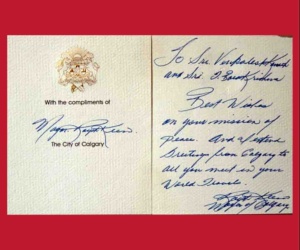 With the compliments of
Mayor Ralph Klein
The City of Calgary
To Sri.
and Sri.
Best Wishes
on your mission of
peace. And extend
Greetings from Calgary to
all you meet in your
World Travels.
Ralph Klein
Mayor of Calgary